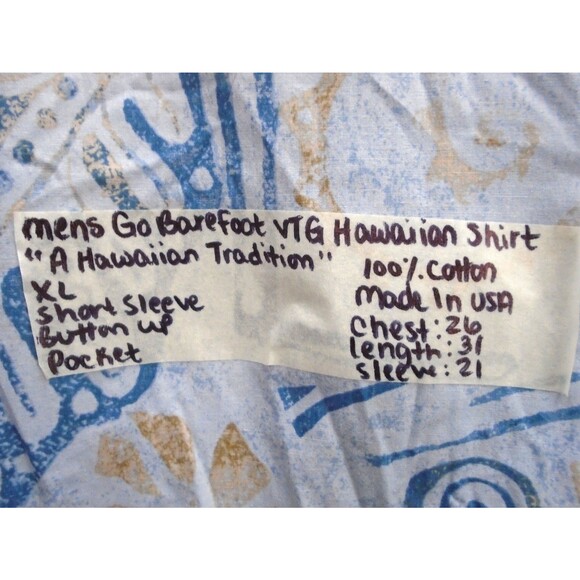 mens Go Barefoot VTG Hawaiian Shirt
"A Hawaiian Tradition"
XL
Short Sleeve
Button up
Pocket
100% Cotton
Made In USA
Chest: 26
length: 31
sleeve: 21